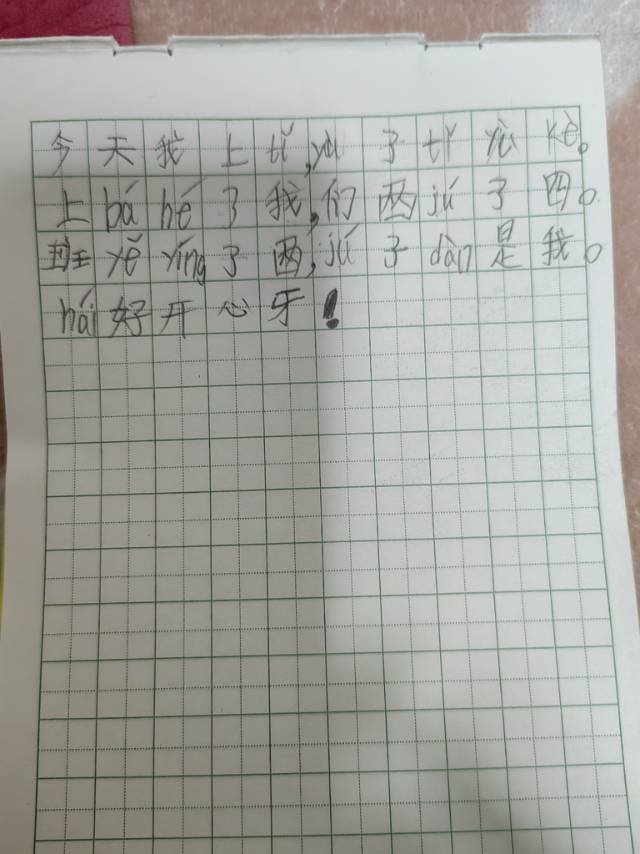 今天我上tǐ,yù了tǐ yù kè。
上bá hé了我,们两jú了四。
班yě yíng了两,jú了dàn是我。
hái好开心牙！